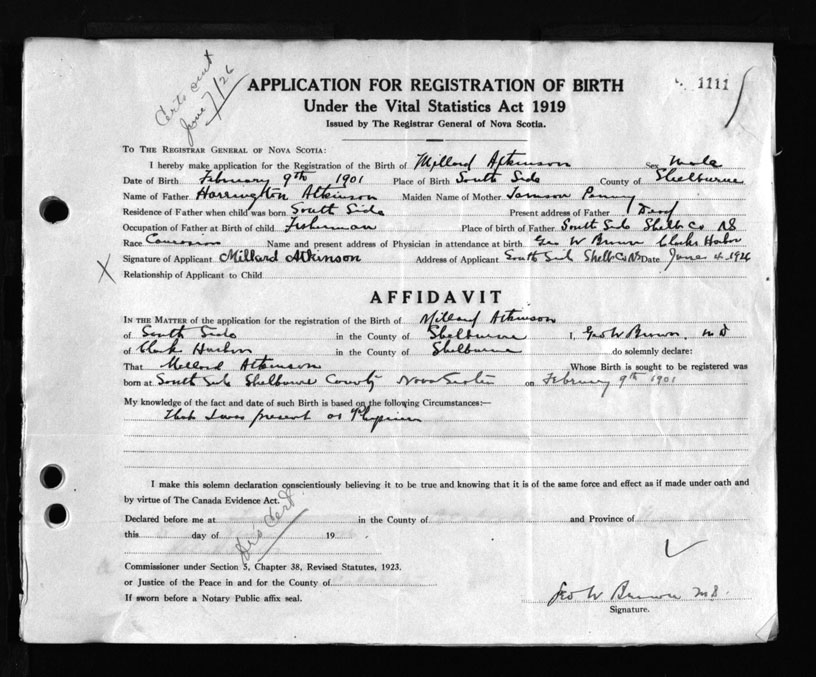 Certs sent
June 7/26
APPLICATION FOR REGISTRATION OF BIRTH
1111
Under the Vital Statistics Act 1919
Issued by The Registrar General of Nova Scotia.
TO THE REGISTRAR GENERAL OF NOVA SCOTIA:
I hereby make application for the Registration of the Birth of Millard Atkinson Sex male
Date of Birth February 9th 1901 Place of Birth South Side County of Shelburne
Name of Father Harrington Atkinson Maiden Name of Mother Penny
Residence of Father when child was born South Side Present address of Father Dead
Occupation of Father at Birth of child Fisherman Place of birth of Father South Side Shelb Co NS
Race Name and present address of Physician in attendance at birth Geo W Brown Clarks Harbor
Signature of Applicant Millard Atkinson Address of Applicant South Side Shelb Co NS Date June 4 1926
X
Relationship of Applicant to Child
AFFIDAVIT
IN THE MATTER of the application for the registration of the Birth of Millard Atkinson
of South Side in the County of Shelburne I, Geo W Brown, MD
of Clarks Harbor in the County of Shelburne do solemnly declare:
That Millard Atkinson Whose Birth is sought to be registered was
born at South Side Shelburne County Nova Scotia on February 9th 1901
My knowledge of the fact and date of such Birth is based on the following Circumstances:—
that I was present as Physician
I make this solemn declaration conscientiously believing it to be true and knowing that it is of the same force and effect as if made under oath and
by virtue of The Canada Evidence Act.
Declared before me at in the County of and Province of
this day of 19
Drs Cert
Commissioner under Section 5, Chapter 38, Revised Statutes, 1923.
or Justice of the Peace in and for the County of
If sworn before a Notary Public affix seal.
Geo W Brown MD.
Signature.